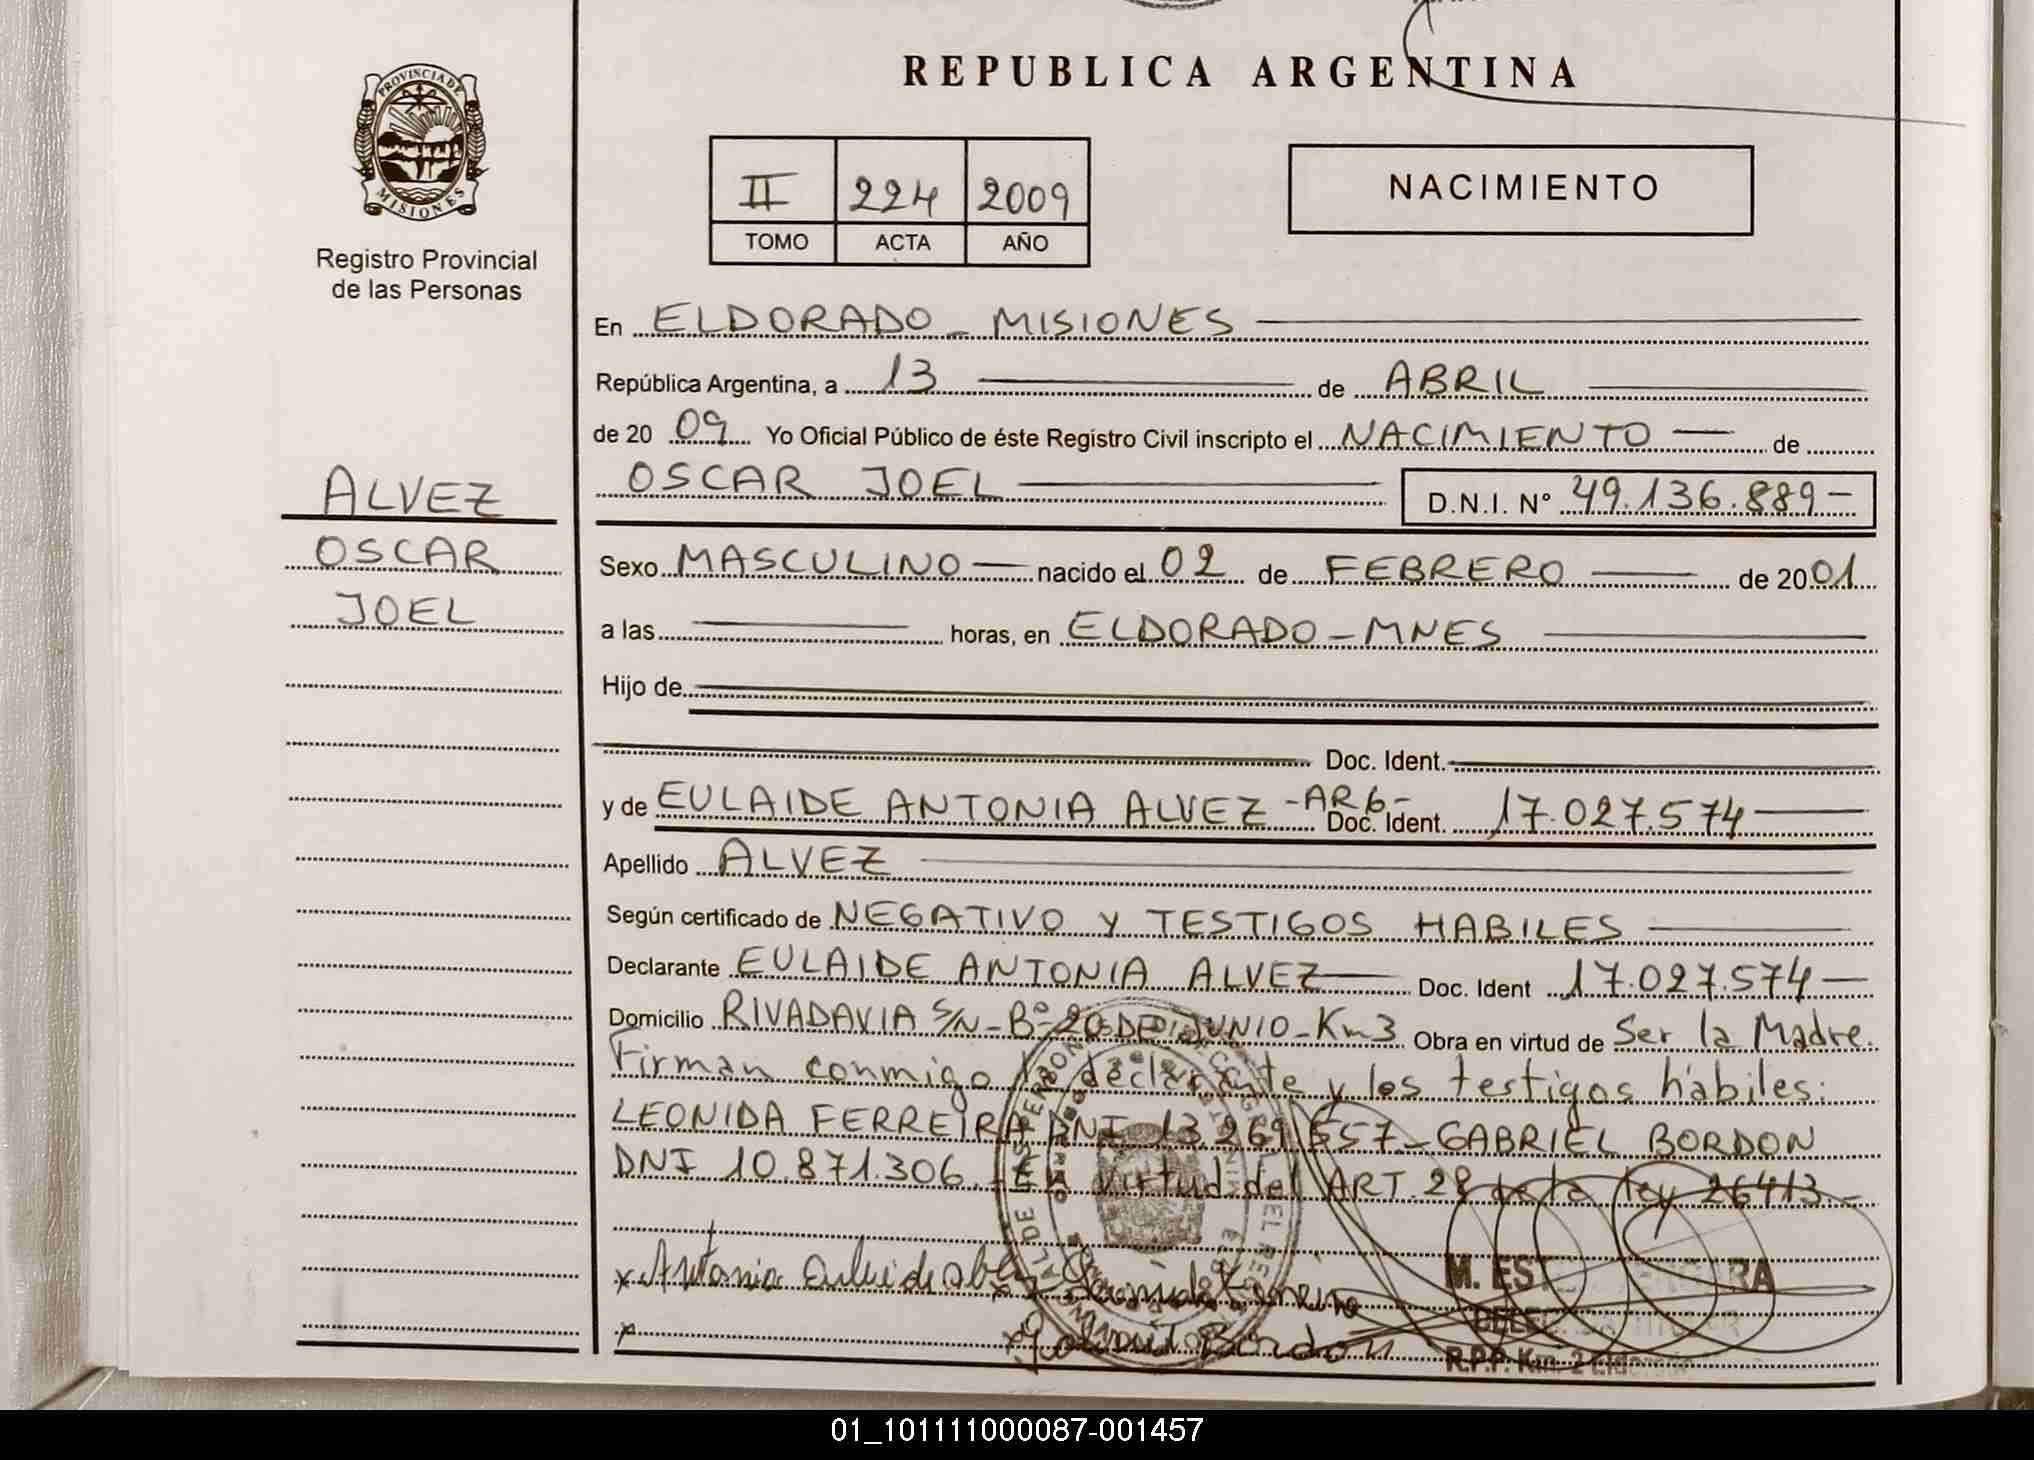 PROVINCIA DE
MISIONES
Registro Provincial
de las Personas
REPUBLICA ARGENTINA
II 224 2009
TOMO ACTA AÑO
NACIMIENTO
En ELDORADO - MISIONES
República Argentina, a 13 de ABRIL
de 20 09 Yo Oficial Público de éste Registro Civil inscripto el NACIMIENTO de
OSCAR JOEL D.N.I. Nº 49.136.889-
ALVEZ
OSCAR
JOEL
Sexo MASCULINO nacido el 02 de FEBRERO de 2001
a las horas, en ELDORADO - MNES
Hijo de
Doc. Ident.
y de EULAIDE ANTONIA ALVEZ -ARG- Doc. Ident. 17.027.574
Apellido ALVEZ
Según certificado de NEGATIVO Y TESTIGOS HABILES
Declarante EULAIDE ANTONIA ALVEZ Doc. Ident 17.027.574
Domicilio RIVADAVIA S/N - Bº 20 DE JUNIO - Km3 Obra en virtud de Ser la Madre.
Firman conmigo declarante y los testigos hábiles:
LEONIDA FERREIRA DNI 13.269.557 - GABRIEL BORDON
DNI 10.871.306. - En virtud del ART. 28 de la ley 26413 -
x Antonia
x Bordon
M.
R.P.P. Km. 2 Eldorado
01_101111000087-001457